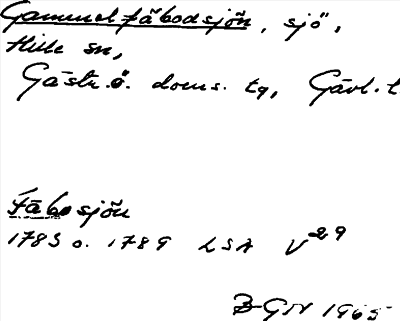 Gammelfäbodsjön, sjö,
Hille sn,
Gästr. ö. doms. tg, Gävl. l
Fäbosjön
1783 o. 1789 LSA V29
BGN 1965